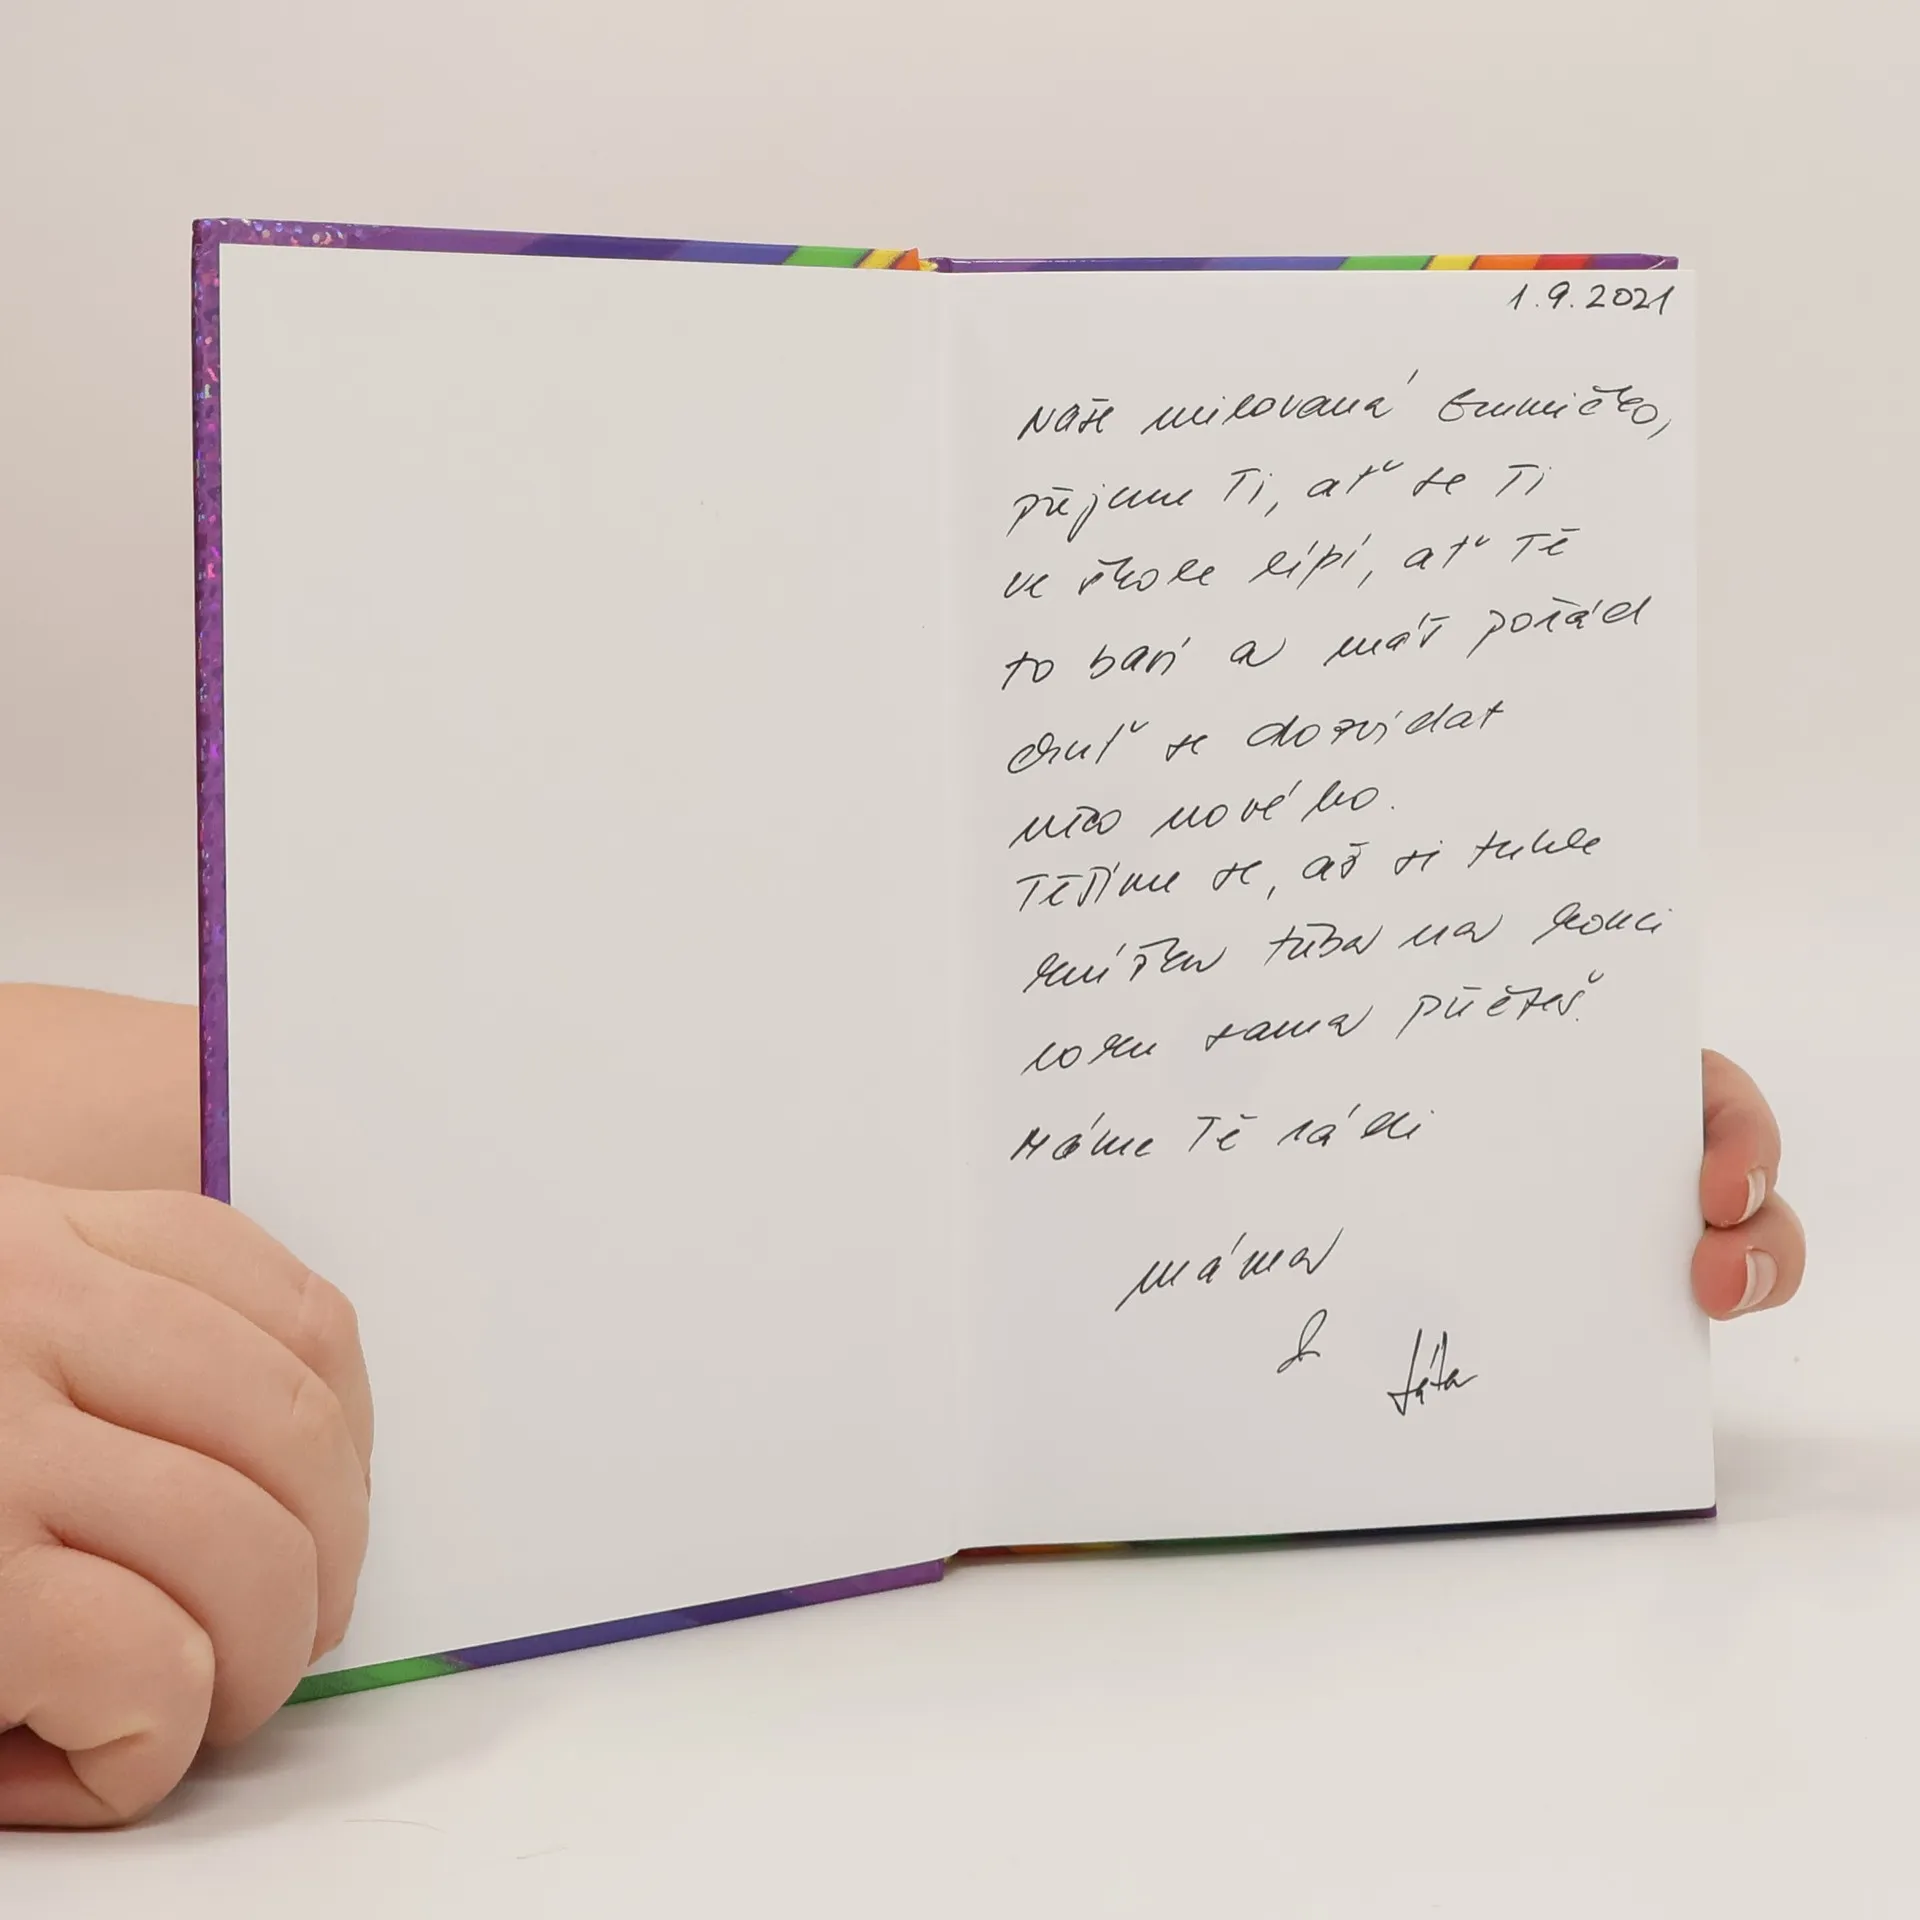 1.9.2021
Naše milovaná Emmičko,
přejeme Ti, ať se Ti
ve škole líbí, ať Tě
to baví a máš pořád
chuť se dozvídat
něco nového.
Těšíme se, až si tuhle
knížku třeba na konci
roku sama přečteš.
Máme Tě rádi
máma
&
táta